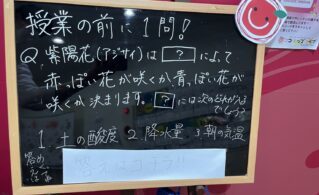 授業の前に1問!
Q. 紫陽花(アジサイ)は ? によって
赤っぽい花が咲くか青っぽい花が
咲くか決まります。 ? には次のどれが入る
でしょう?
1. 土の酸度 2. 降水量 3. 朝の気温
答え